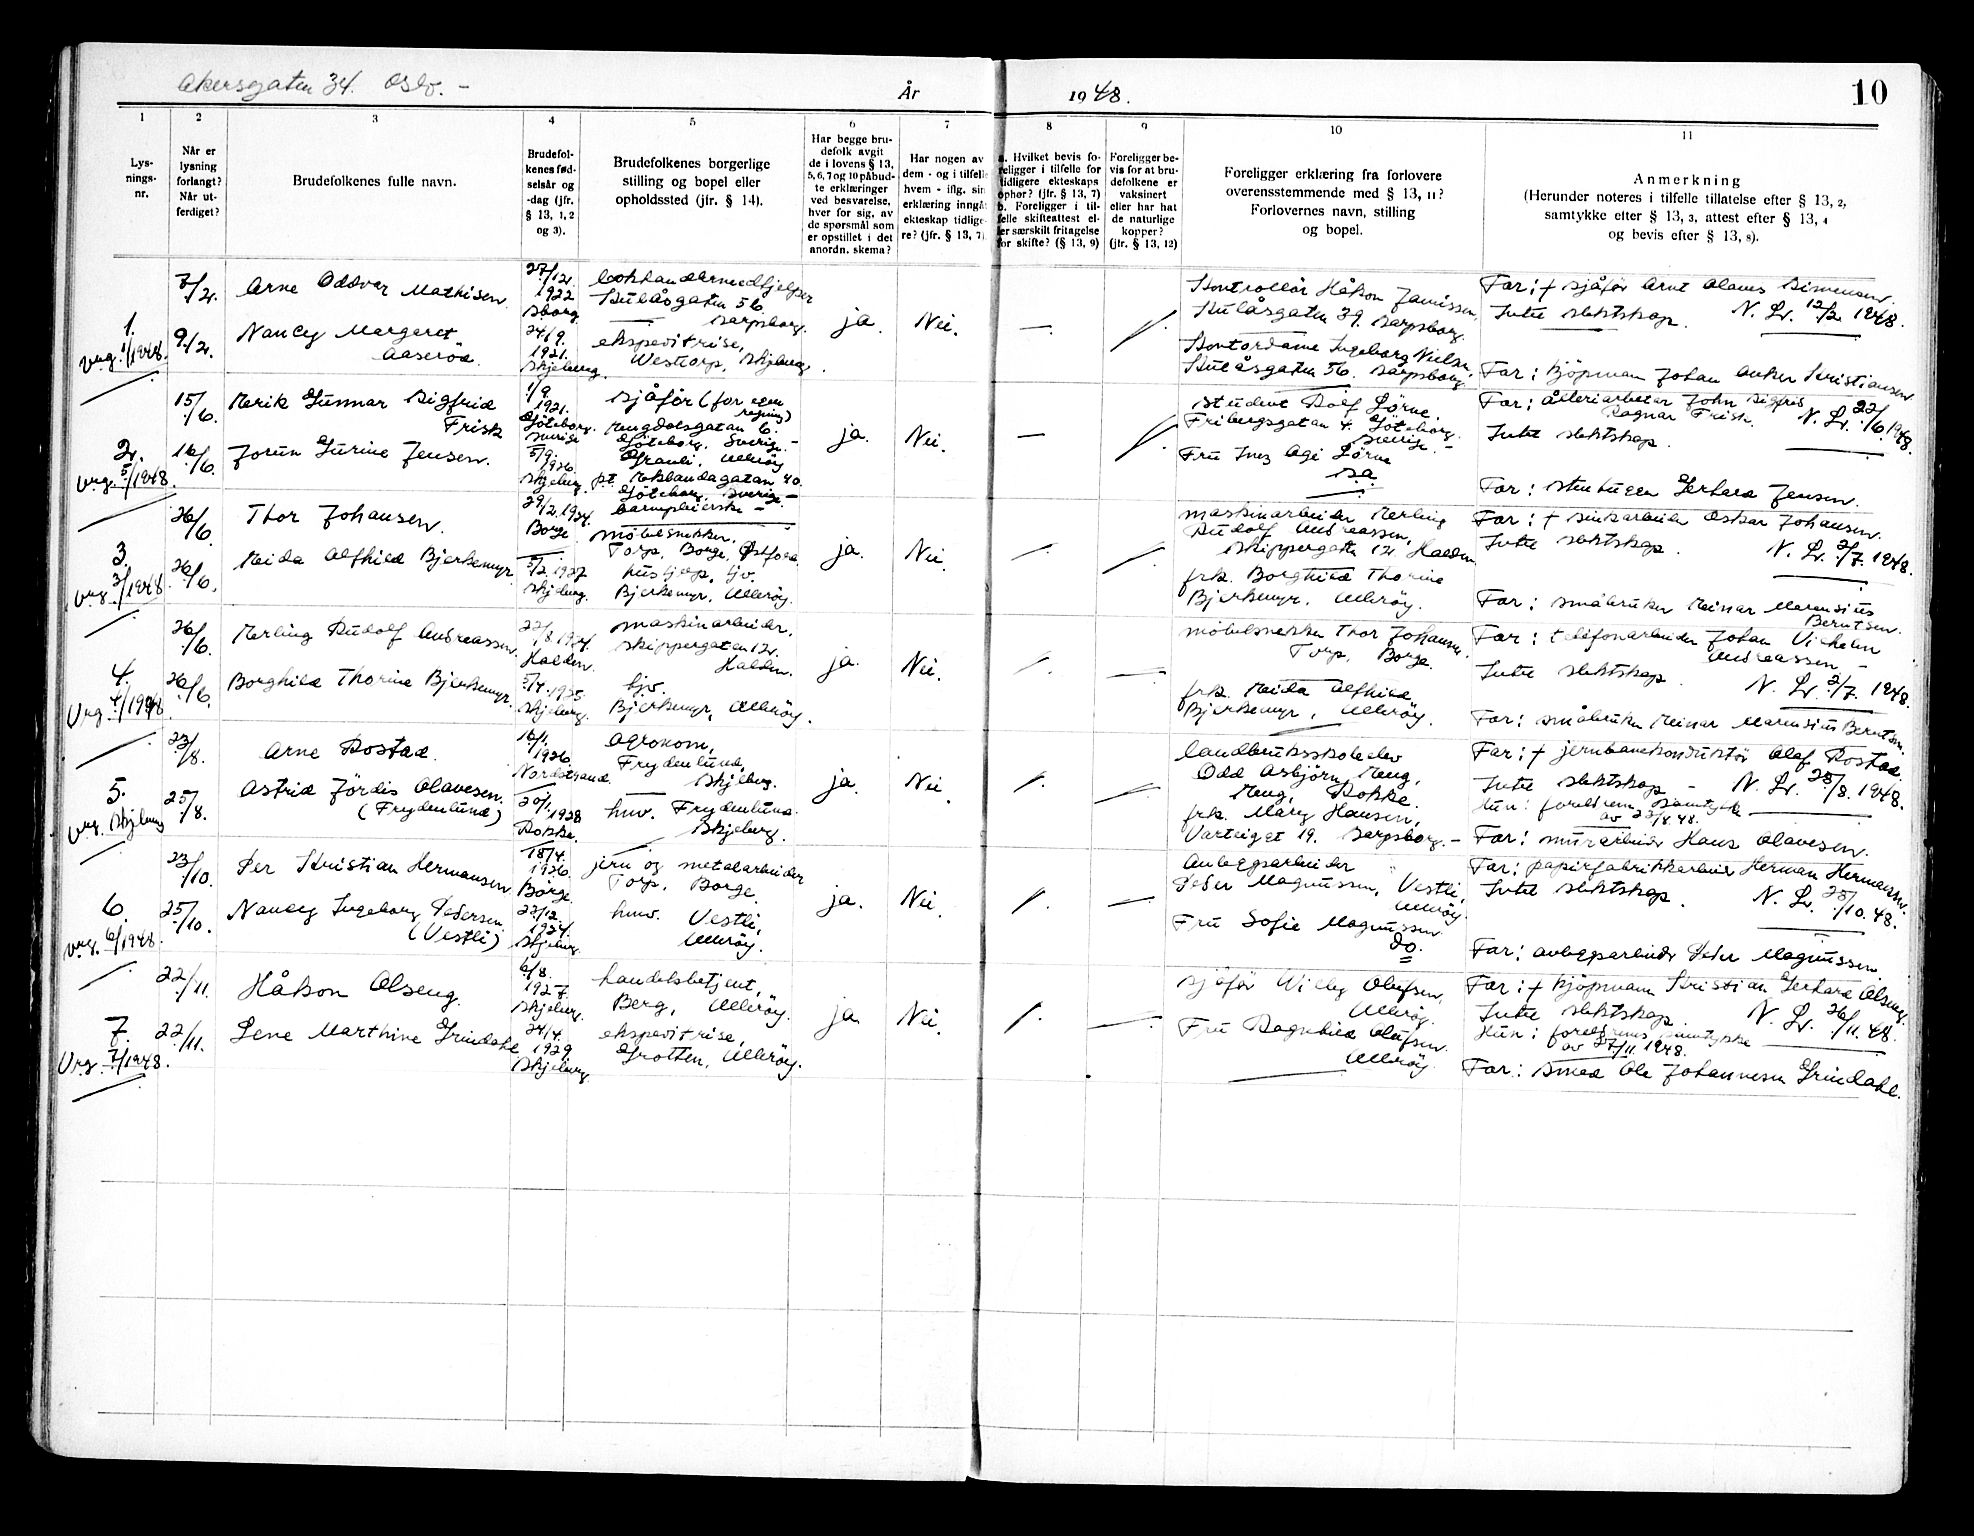 Akersgaten 34. Oslo. -
År 1948.
10
1
2
3
4
5
6
7
8
9
10
11
Lys-
nings-
nr.
Når er
lysning
forlangt?
Når ut-
ferdiget?
Brudefolkenes fulle navn.
Brudefol-
kenes fød-
selsår og
-dag (jfr.
§ 13, 1, 2
og 3).
Brudefolkenes borgerlige
stilling og bopel eller
opholdssted (jfr. § 14).
Har begge bru-
defolk avgit
de i lovens § 13,
5, 6, 7 og 10 påbud-
te erklæringer
ved besvarelse,
hver for sig, av
de spørsmål som
er opstillet i det
anordn. skema?
Har nogen av
dem - og i tilfelle
hvem - iflg. sin
erklæring inngåt
ekteskap tidlige-
re? (jfr. § 13, 7)
a. Hvilket bevis fo-
religger i tilfelle for
tidligere ekteskaps
ophør? (jfr. § 13, 7)
b. Foreligger i til-
felle skifteattest el-
ler særskilt fritagelse
for skifte? (§ 13, 9)
Foreligger be-
vis for at bru-
defolkene er
vaksinert
eller har hat
de naturlige
kopper?
(jfr. § 13, 12)
Foreligger erklæring fra forlovere
overensstemmende med § 13, 11?
Forlovernes navn, stilling
og bopel.
Anmerkning
(Herunder noteres i tilfelle tillatelse efter § 13, 2,
samtykke efter § 13, 3, attest efter § 13, 4
og bevis efter § 13, 8).
1.
Vug. 1/1948.
7/2.
9/2.
Arne Oddvar Mathisen
Nancy Margaret
Aaserød.
27/12.
1922
Sborg.
24/9.
1921.
Skjeberg.
Kulåsgaten 56.
Sarpsborg.
ekspeditrise,
Westtorp, Skjeberg.
ja.
Nei.
—
Kontrollør Håkon
Kulåsgaten 39. Sarpsborg.
Kontordame Ingeborg Nielsen,
Kulåsgaten 56. Sarpsborg.
Far: † sjåfør Arnt Olaves Simensen.
Intet slektskap. N. Lr. 12/2 1948.
Far: Kjøpmann Johan Anker Kristiansen
2.
Vug. 5/1948.
15/6.
16/6.
Erik Gunnar Sigfrid
Frisk
Jorun Gurine Jensen.
1/9.
1921.
Göteborg.
Sverige
5/9.
1926.
Skjeberg.
sjåfør (for egen
regning)
Göteborg. Sverige. -
Granli, Ullerøy
pt. Eklandagatan 40.
Göteborg, Sverige -
barnepleierske -
ja.
Nei.
—
student Rolf Lörne.
Fribergsgatan 4. Göteborg.
Sverige. -
Fru Inez Lörne
s.a.
Far: åkeriarbetar John Sigfrid
Ragnar Frisk. N. Lr. 22/6. 1948.
Intet slektskap.
Far: stenhugger Gerhard Jensen.
3.
Vug. 3/1948.
26/6.
26/6.
Thor Johansen.
Eida Alfhild Bjerkemyr.
29/2. 1924.
Borge
5/2. 1927
Skjeberg.
møbelsnekker.
Torp, Borge, Østfold.
hushjelp, hjv.
Bjerkemyr, Ullerøy.
ja.
Nei.
maskinarbeider Erling
Rudolf Andreassen,
Skippergaten 12 Halden.
frk. Borghild Thorine
Bjerkemyr, Ullerøy.
Far: † sinkarbeider Oskar Johansen.
Intet slektskap. N. Lr. 2/7. 1948.
Far: småbruker Einar Marensius
Berntsen.
4.
Vug. 4/1948
26/6.
26/6.
Erling Rudolf Andreassen.
Borghild Thorine Bjerkemyr.
22/8. 1924.
Halden.
5/4. 1925.
Skjeberg.
maskinarbeider.
Skippergaten 12.
Halden.
hjv.
Bjerkemyr, Ullerøy.
ja.
Nei.
møbelsnekker Thor Johansen
Torp, Borge.
frk. Eida Alfhild
Bjerkemyr, Ullerøy.
Far: telefonarbeider Johan Vilhelm
Andreassen -
Intet slektskap. N. Lr. 2/7. 1948.
Far: småbruker Einar Marensius Berntsen.
5.
Vug. Skjeberg
23/8.
25/8.
Arne Rostad.
Astrid Jördis Olavesen.
(Frydenlund)
16/1.
1926.
Nordstrand
20/1.
1928
Rokke.
agronom,
Frydenlund,
Skjeberg.
hmv. Frydenlund.
Skjeberg.
ja.
Nei
landbruksskoleelev
Odd Asbjørn Eng,
Eng, Rokke.
frk. Mary Hansen,
Varteiget 19. Sarpsborg. -
Far: † jernbanekonduktør Olaf Rostad.
Intet slektskap - N. Lr. 25/8. 1948.
Hun: foreldrenes samtykke
av 23/8 48.
Far: murarbeider Hans Olavesen.
6.
Vug. 6/1948.
23/10.
25/10.
Per Kristian Hermansen
Nancy Ingeborg Pedersen
(Vestli)
18/4.
1926.
Borge.
22/12.
1924.
Skjeberg.
jern og metalarbeider
Torp, Borge
hmv. Vestli,
Ullerøy.
ja.
Nei.
Anleggsarbeider
Peder Magnussen, Vestli,
Ullerøy.
Fru Sofie Magnussen
do.
Far: papirfabrikkarbeider Herman Hermansen.
Intet slektskap. N. Lr. 25/10. 48.
Far: anleggsarbeider Peder Magnussen.
7.
Vug. 7/1948.
22/11.
22/11.
Håkon Olseng.
Lene Marthine Grindahl
6/8.
1927.
Skjeberg.
24/4.
1929.
Skjeberg.
handelsbetjent,
Berg, Ullerøy.
ekspeditrise,
Grotten, Ullerøy.
ja
Nei.
sjåfør Willy Olufsen,
Ullerøy.
Fru Ragnhild Olufsen.
Ullerøy.
Far: † kjøpmann Kristian Gerhard Olseng.
Intet slektskap N. Lr. 26/11. 48.
Hun: foreldrenes samtykke
av 27/11. 1948.
Far: smed Ole Johannesen Grindahl.